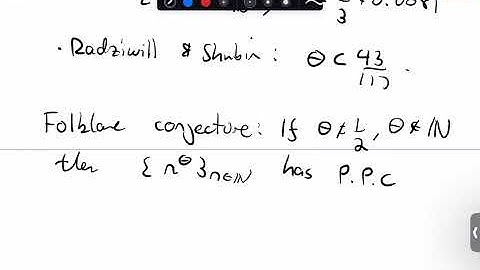 3
· Radziwill & Shubin : θ < 43/117 .
Folklore conjecture: If θ ≠ 1/2, θ ∉ ℕ
then { n^θ }n∈ℕ has P.P.C